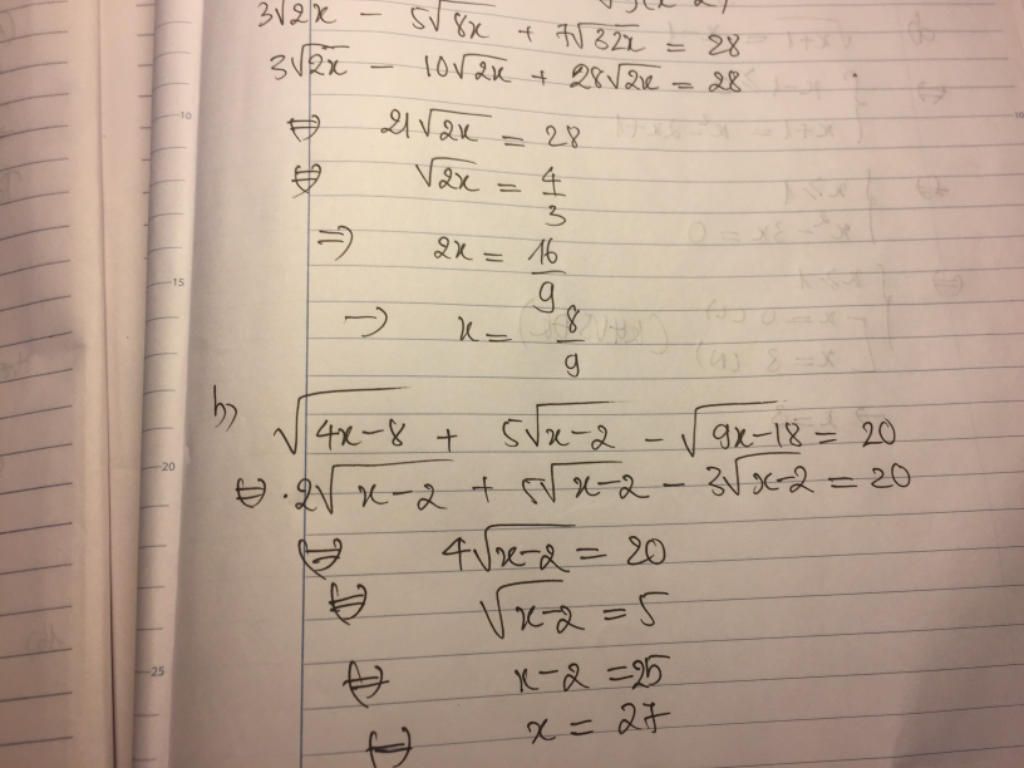 3√2x - 5√8x + 7√32x = 28
3√2x - 10√2x + 28√2x = 28
⇔ 21√2x = 28
⇔ √2x = 4/3
⇒ 2x = 16/9
→ x = 8/9
b) √4x-8 + 5√x-2 - √9x-18 = 20
⇔ 2√x-2 + 5√x-2 - 3√x-2 = 20
⇔ 4√x-2 = 20
⇔ √x-2 = 5
⇔ x-2 = 25
⇔ x = 27